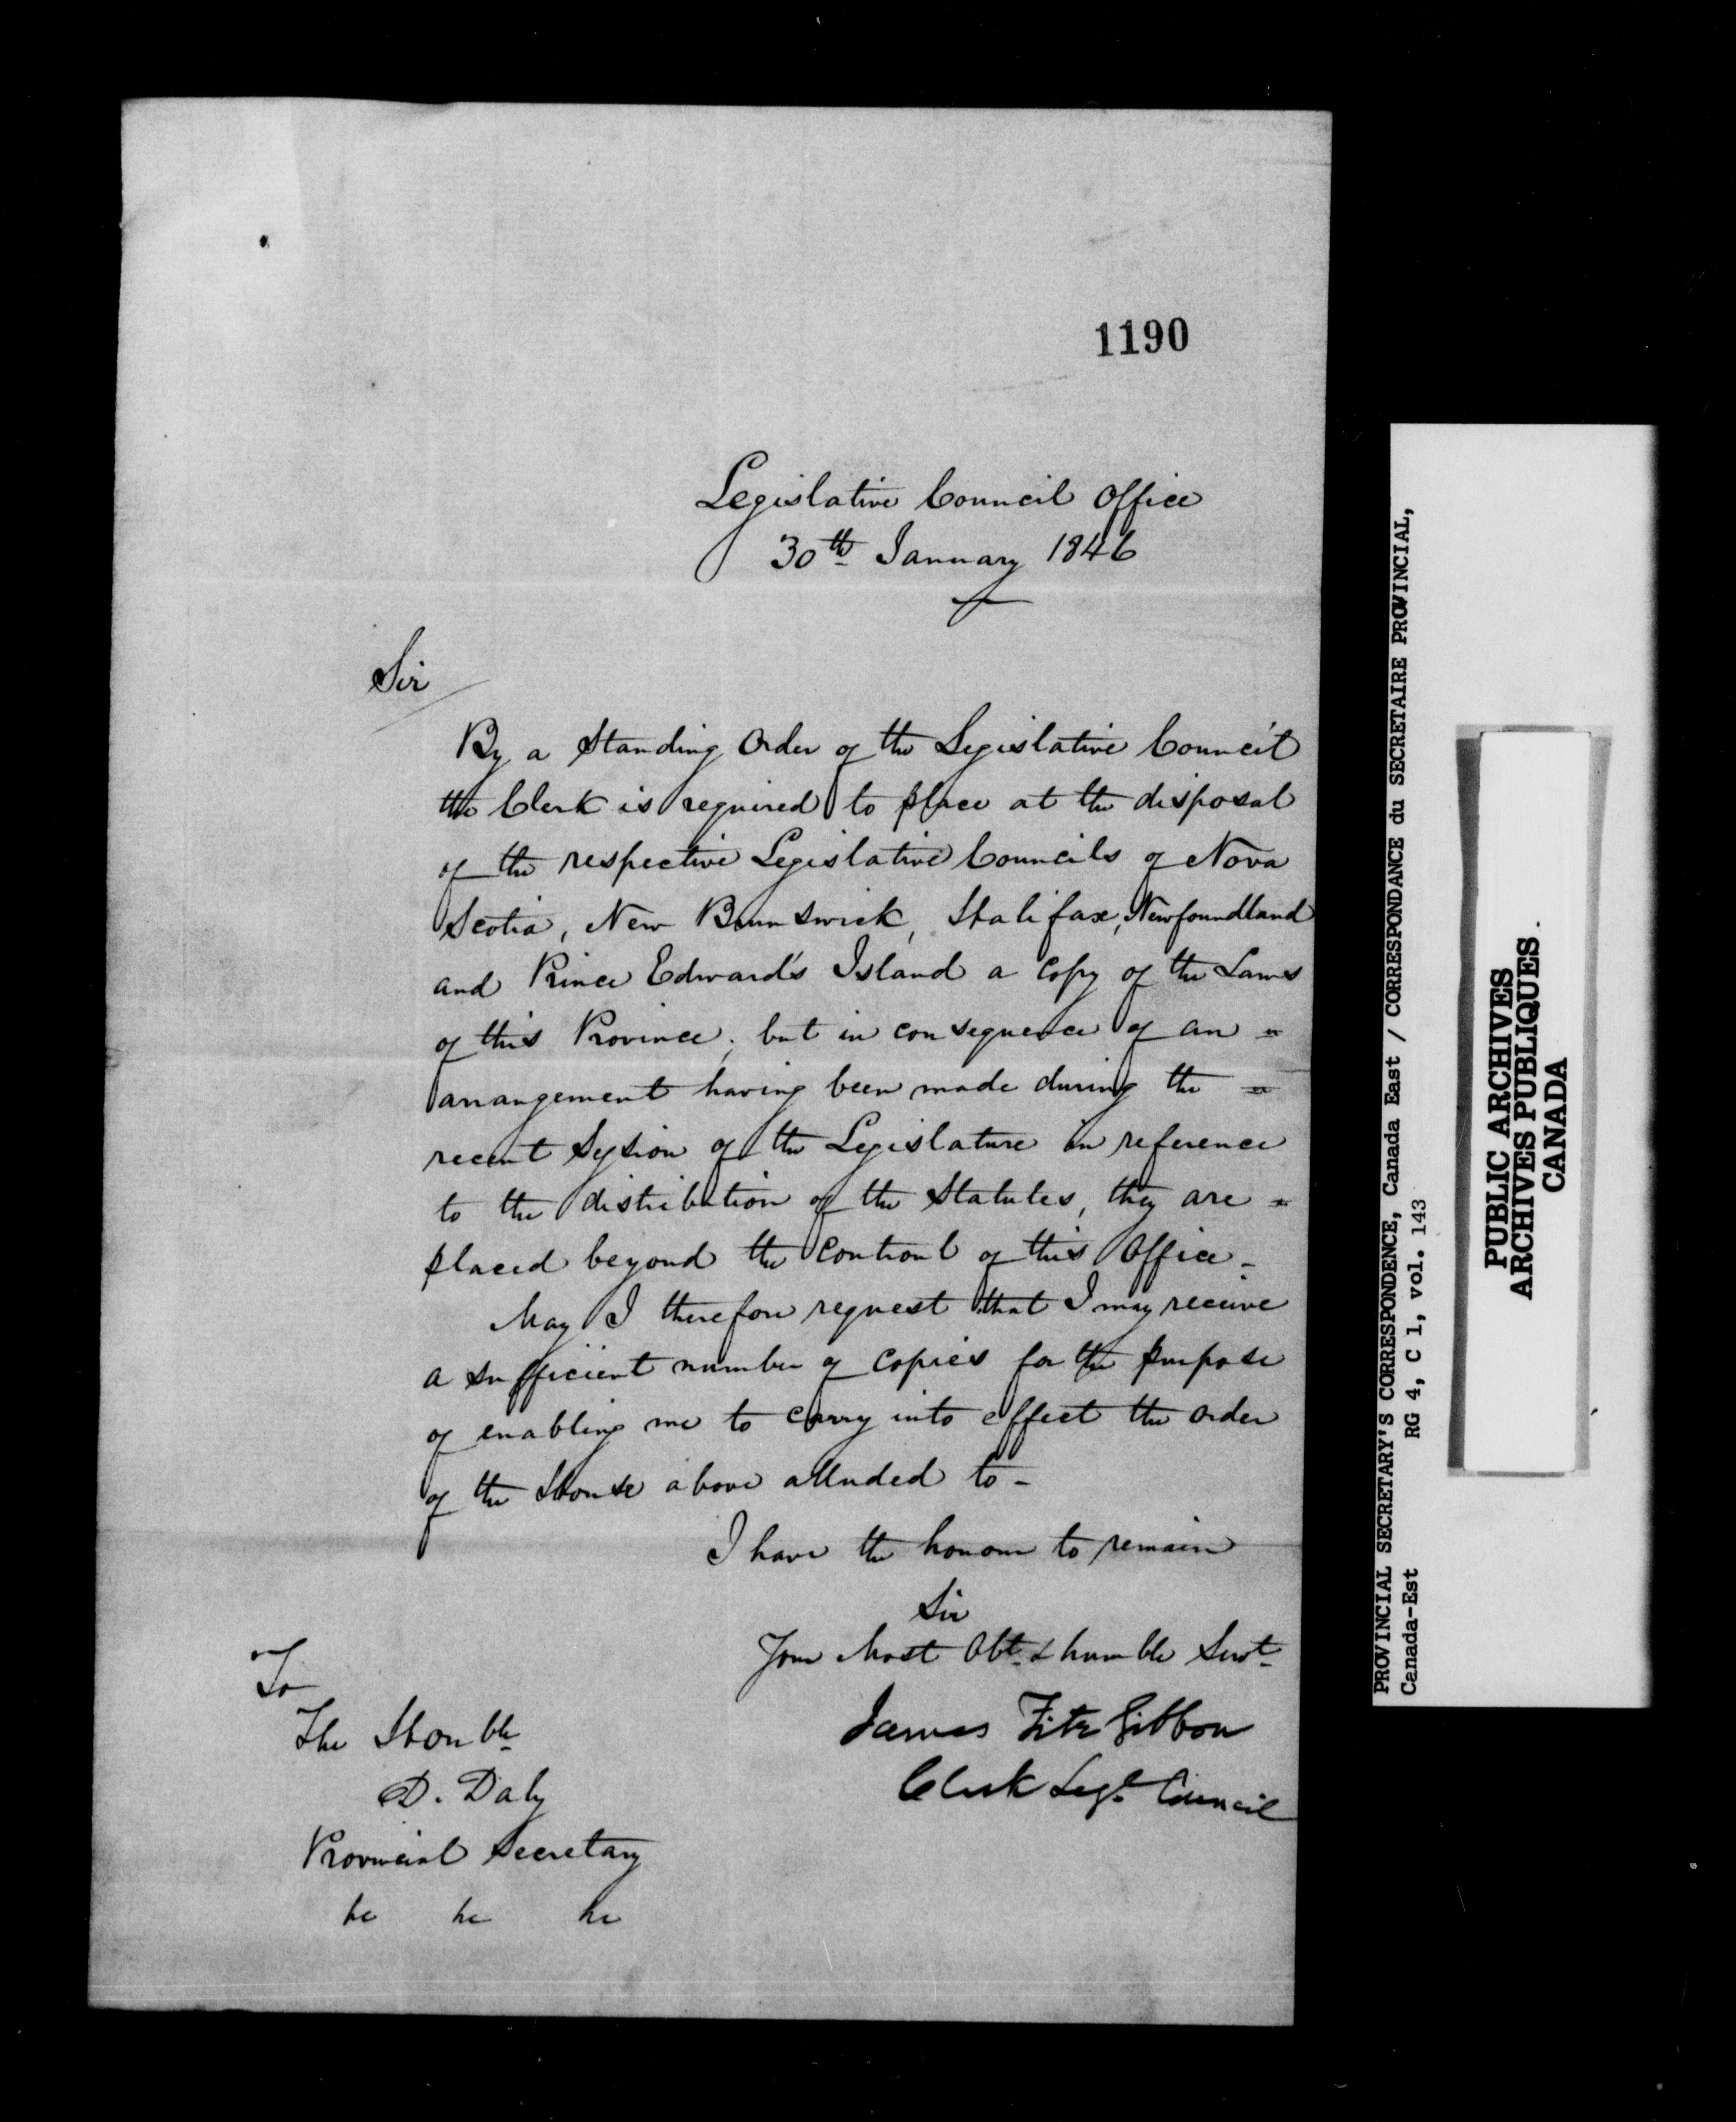 1190
Legislative Council Office
30th January 1846
Sir
By a Standing Order of the Legislative Council
the Clerk is required to place at the disposal
of the respective Legislative Councils of Nova
Scotia, New Brunswick, Halifax, Newfoundland
and Prince Edward's Island a Copy of the Laws
of this Province; but in consequence of an =
arrangement having been made during the =
recent Session of the Legislature in reference
to the distribution of the Statutes, they are =
placed beyond the Controul of this Office -
May I therefore request that I may receive
a sufficient number of Copies for the purpose
of enabling me to carry into effect the Order
of the House above alluded to -
I have the honour to remain
Sir
Your Most Obt. & humble Servt.
James FitzGibbon
Clerk Legl. Council
To
The Honble
D. Daly
Provincial Secretary
&c &c &c
PROVINCIAL SECRETARY'S CORRESPONDENCE, Canada East / CORRESPONDANCE du SECRETAIRE PROVINCIAL,
Canada-Est RG 4, C 1, vol. 143
PUBLIC ARCHIVES
ARCHIVES PUBLIQUES
CANADA